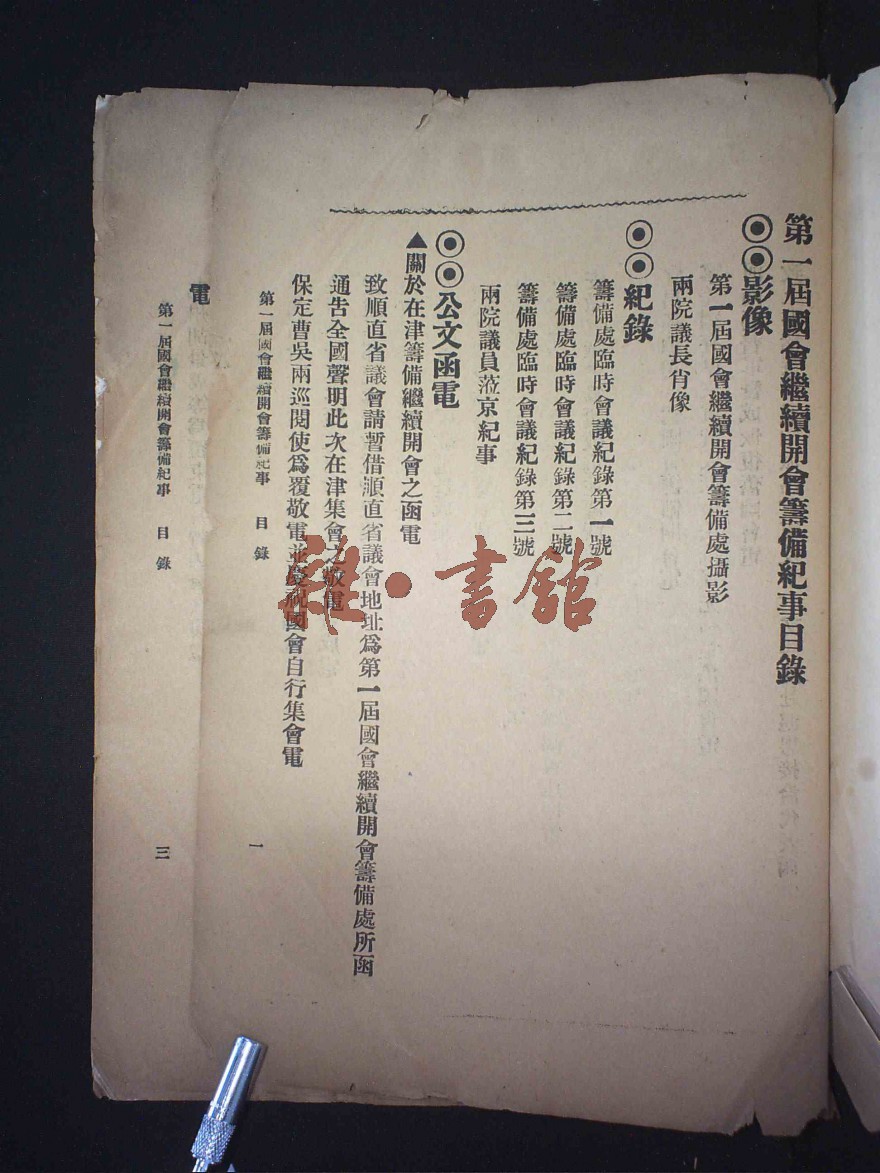 第一屆國會繼續開會籌備紀事目錄
◉◉影像
第一屆國會繼續開會籌備處攝影
兩院議長肖像
◉◉紀錄
籌備處臨時會議紀錄第一號
籌備處臨時會議紀錄第二號
籌備處臨時會議紀錄第三號
兩院議員蒞京紀事
◉◉公文函電
▲關於在津籌備繼續開會之函電
致順直省議會請暫借順直省議會地址爲第一屆國會繼續開會籌備處所函
通告全國聲明此次在津集會之敬電
保定曹吳兩巡閱使爲覆敬電並慶祝國會自行集會電
第一屆國會繼續開會籌備紀事 目錄 一
電
第一屆國會繼續開會籌備紀事 目錄 三
雜·書館